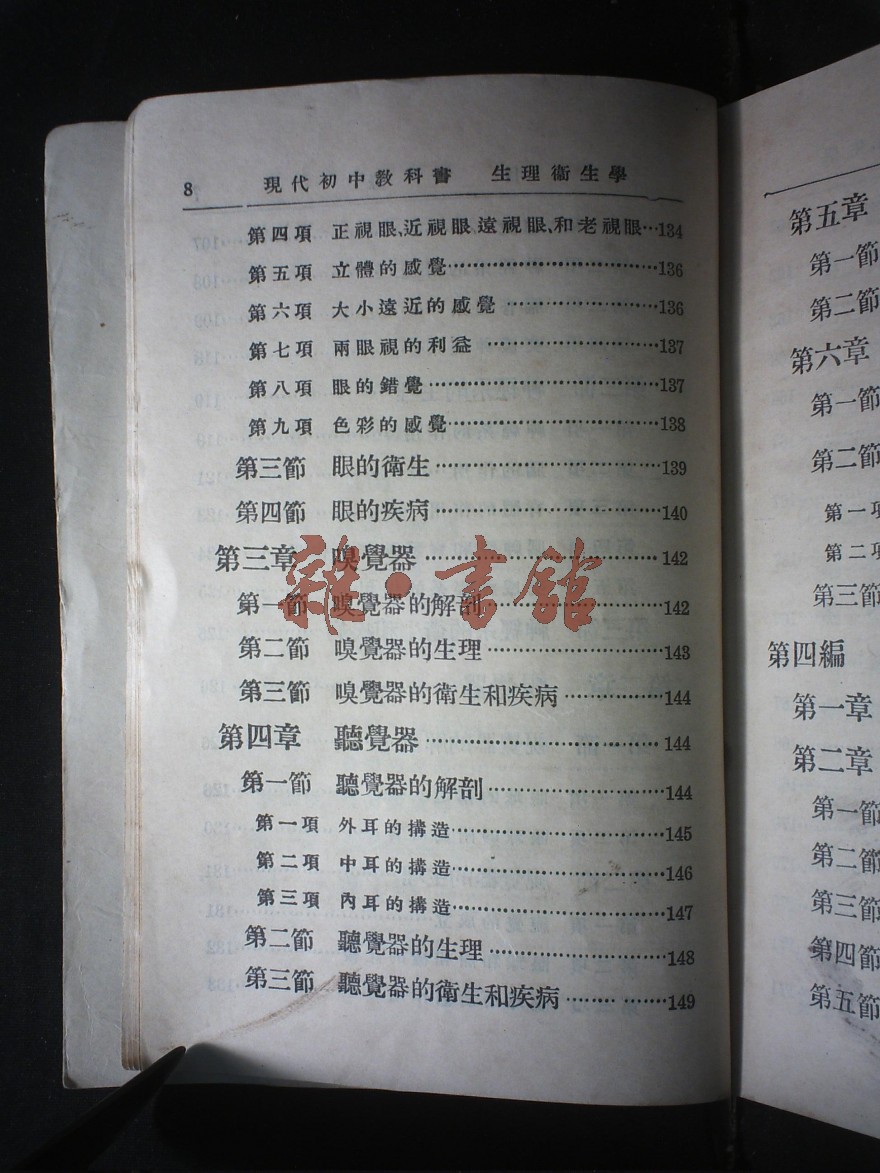 8 現代初中教科書 生理衞生學
第四項 正視眼、近視眼、遠視眼、和老視眼…134
第五項 立體的感覺…136
第六項 大小遠近的感覺…136
第七項 兩眼視的利益…137
第八項 眼的錯覺…137
第九項 色彩的感覺…138
第三節 眼的衞生…139
第四節 眼的疾病…140
第三章 嗅覺器…142
第一節 嗅覺器的解剖…142
第二節 嗅覺器的生理…143
第三節 嗅覺器的衞生和疾病…144
第四章 聽覺器…144
第一節 聽覺器的解剖…144
第一項 外耳的搆造…145
第二項 中耳的搆造…146
第三項 內耳的搆造…147
第二節 聽覺器的生理…148
第三節 聽覺器的衞生和疾病…149
雜·書館
第五章
第一節
第二節
第六章
第一節
第二節
第一項
第二項
第三節
第四編
第一章
第二章
第一節
第二節
第三節
第四節
第五節